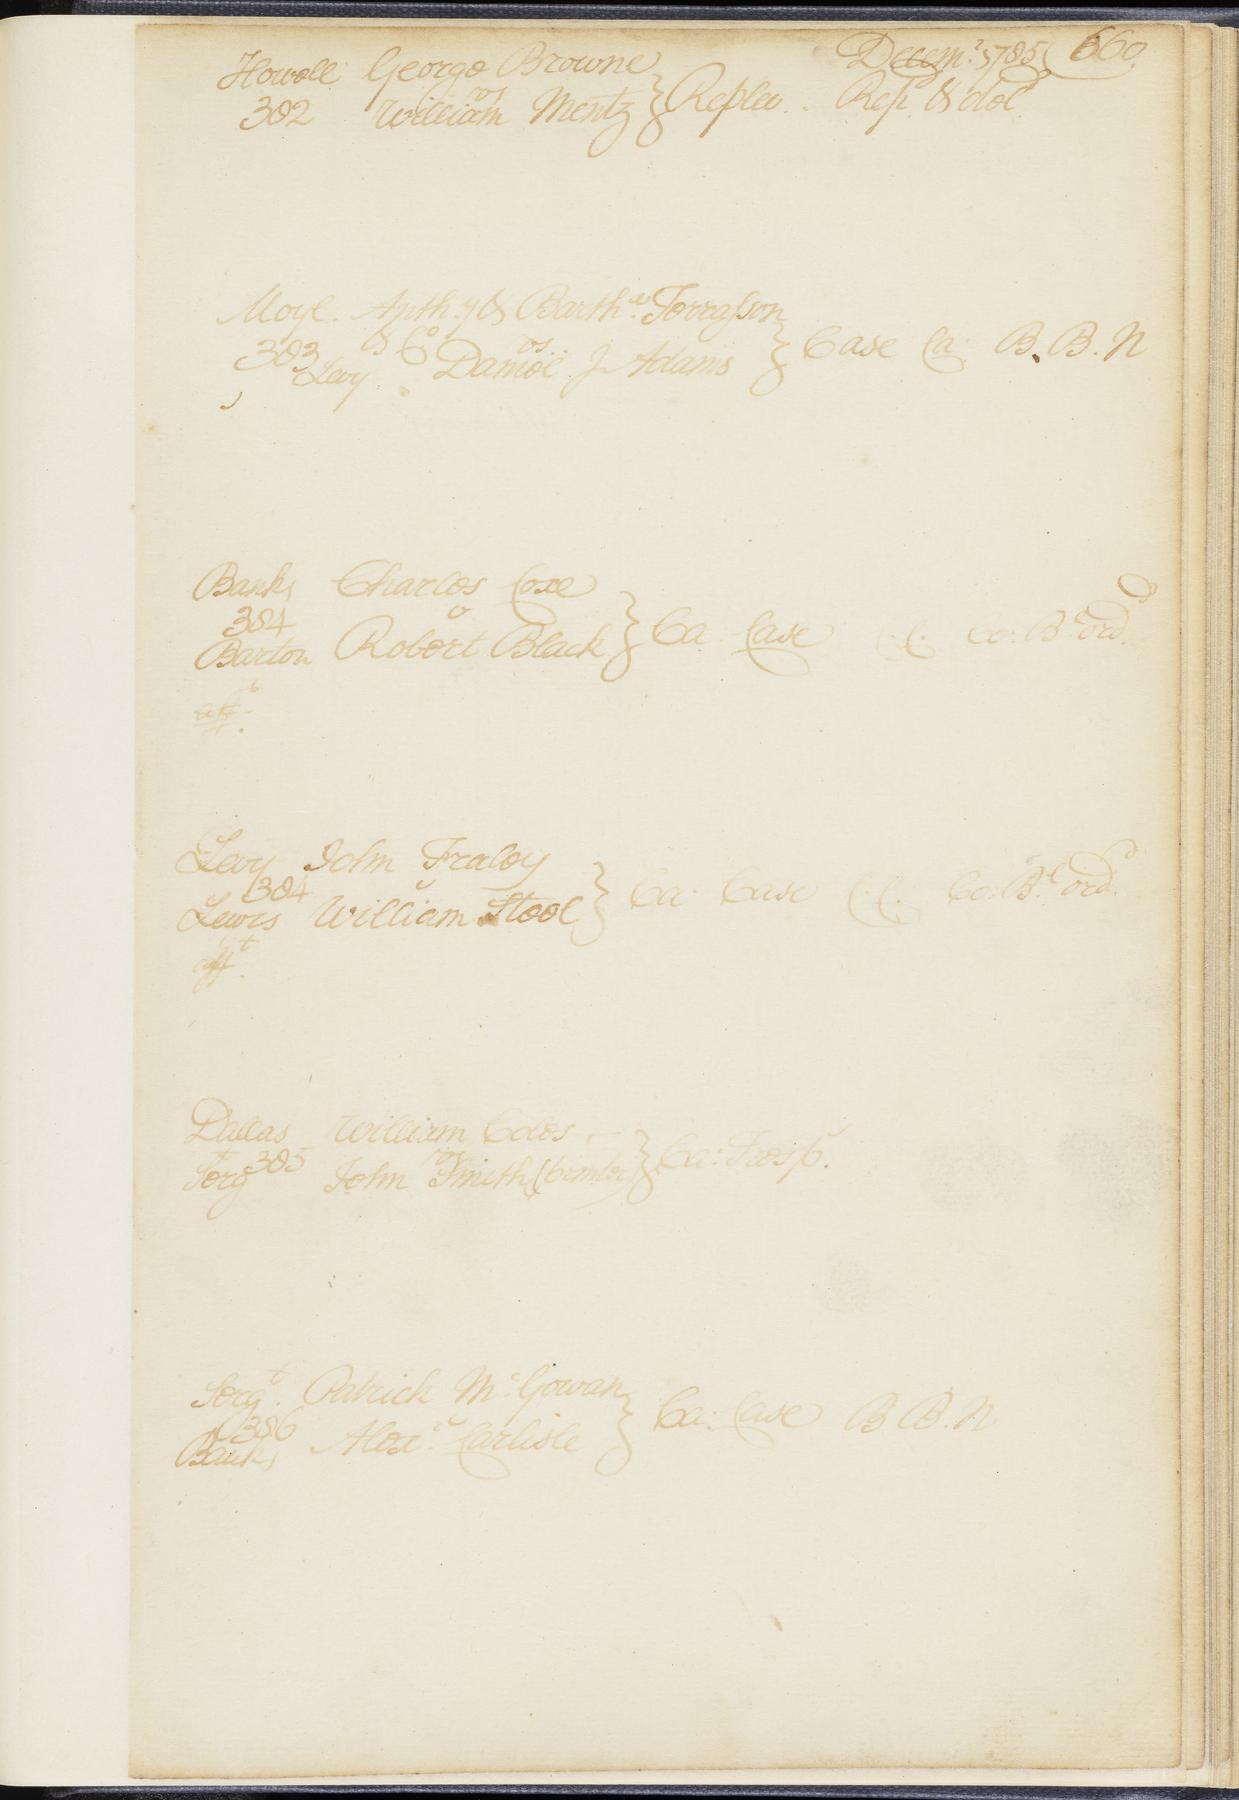 Decem.r 1785 660
Howell George Browne
vs
302 William Mentz } Replev. Rep. & dol
Moyl. Anth.y & Barth.w Terrasson
& Co vs
303 Levy Daniel J Adams } Case Ca: B. B. N
Banks Charles Coxe
384 v
Barton Robert Black } Ca. Case C. C. Co: B.l ord.
Levy John Fraley
384 v
Lewis William Steel } Ca: Case C. C. Co: B.l ord.
aff.t
Dallas William Coles
vs
Serg.t 385 John Smith } Ca: Tresp.
Serg.t Patrick Mc.Gowan
386 v
Banks Alex.r Carlisle } Ca: Case B B. N